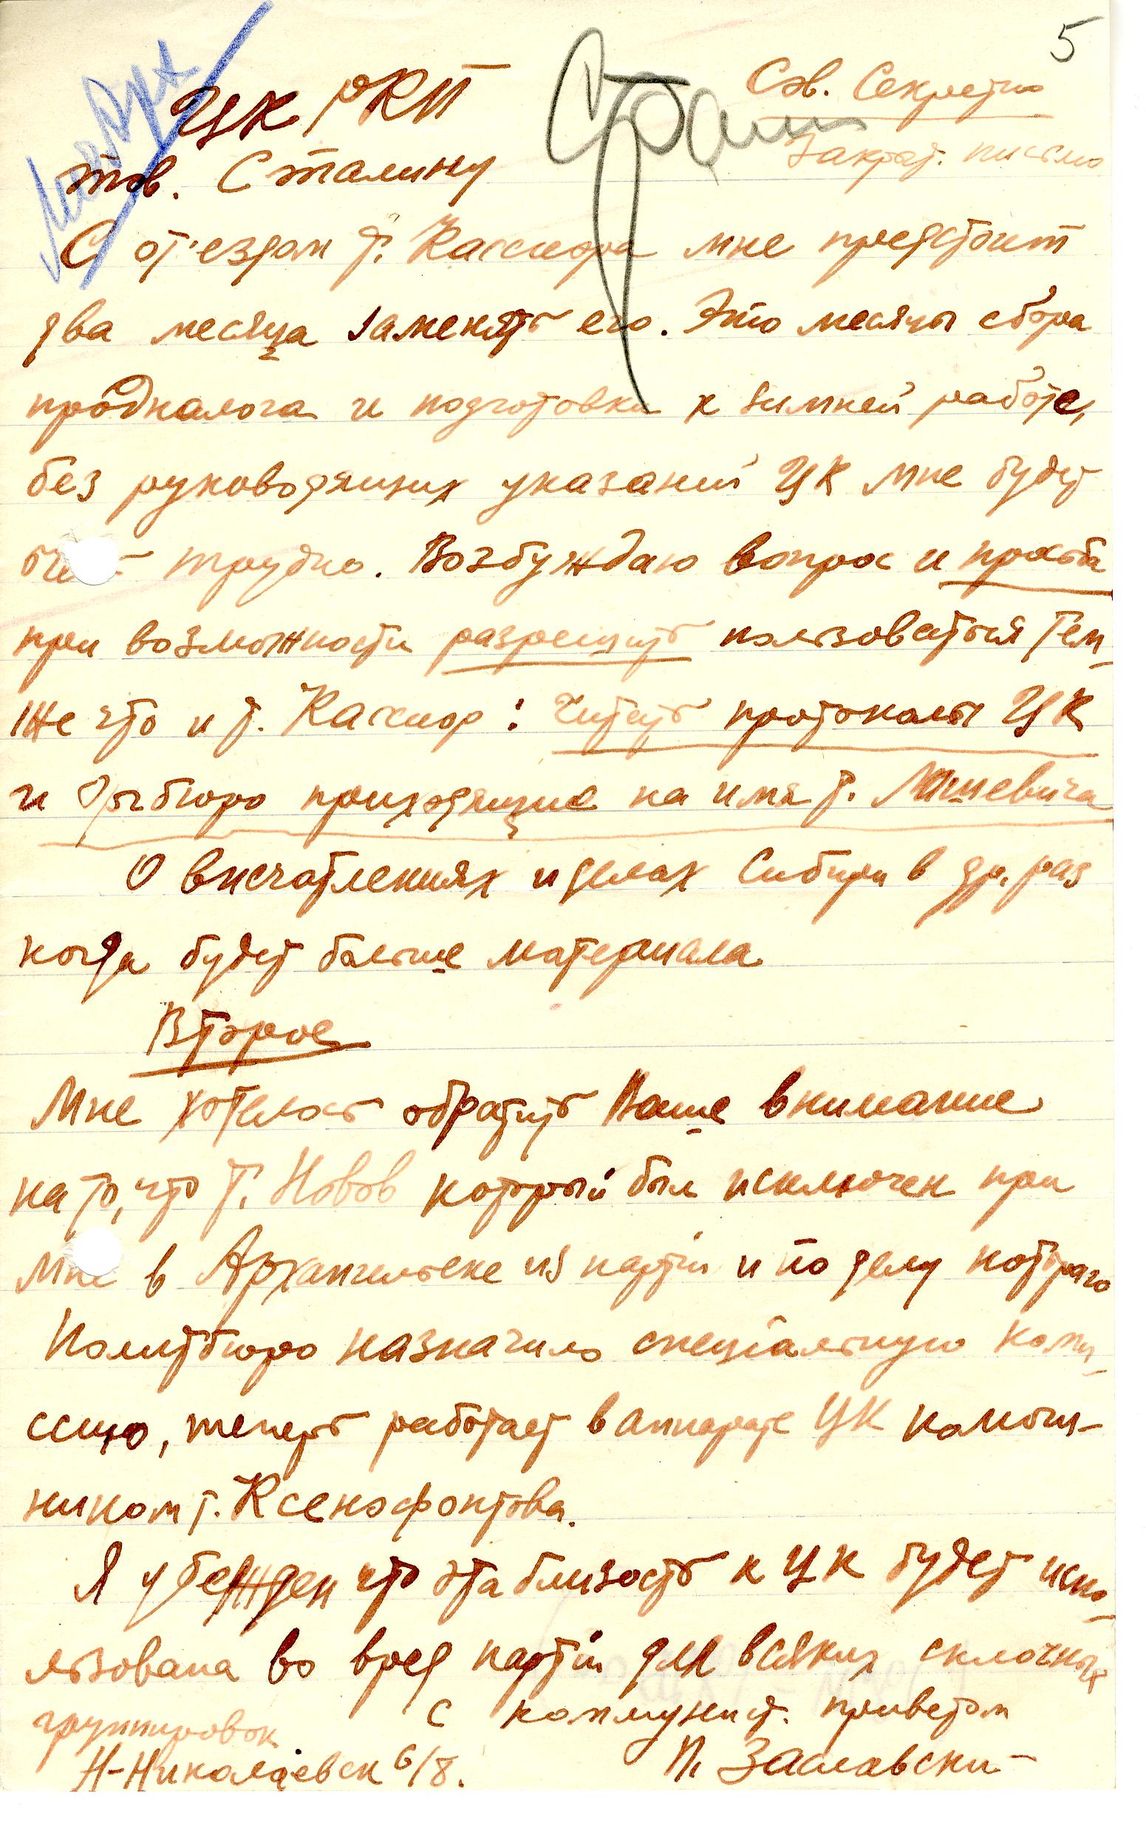 5
Сов. Секретно
ЦК РКП
Закрыт. письмо
тов. Сталину
С от'ездом т. Кассиора мне предстоит
два месяца заменять его. Это месяцы сбора
продналога и подготовки к зимней работе,
без руководящих указаний ЦК мне будет
трудно. Возбуждаю вопрос и просьба
при возможности разрешить пользоваться тем-
же что и т. Кассиор: читать протоколы ЦК
и Оргбюро приходящие на имя т. Лашевича
О впечатлениях и делах Сибири в др. раз
когда будет больше материала
Второе
Мне хотелось обратить Ваше внимание
на то, что т. Новов который был исключен при
мне в Архангельске из партiи и по делу которого
Политбюро назначило специальную коми-
ссию, теперь работает в аппарате ЦК помощ-
ником т. Ксенофонтова.
Я убежден что эта близость к ЦК будет испо-
льзована во вред партiи для всяких склочных
группировок
С коммунист. приветом
Н-Николаевск 6/8.
П. Заславский